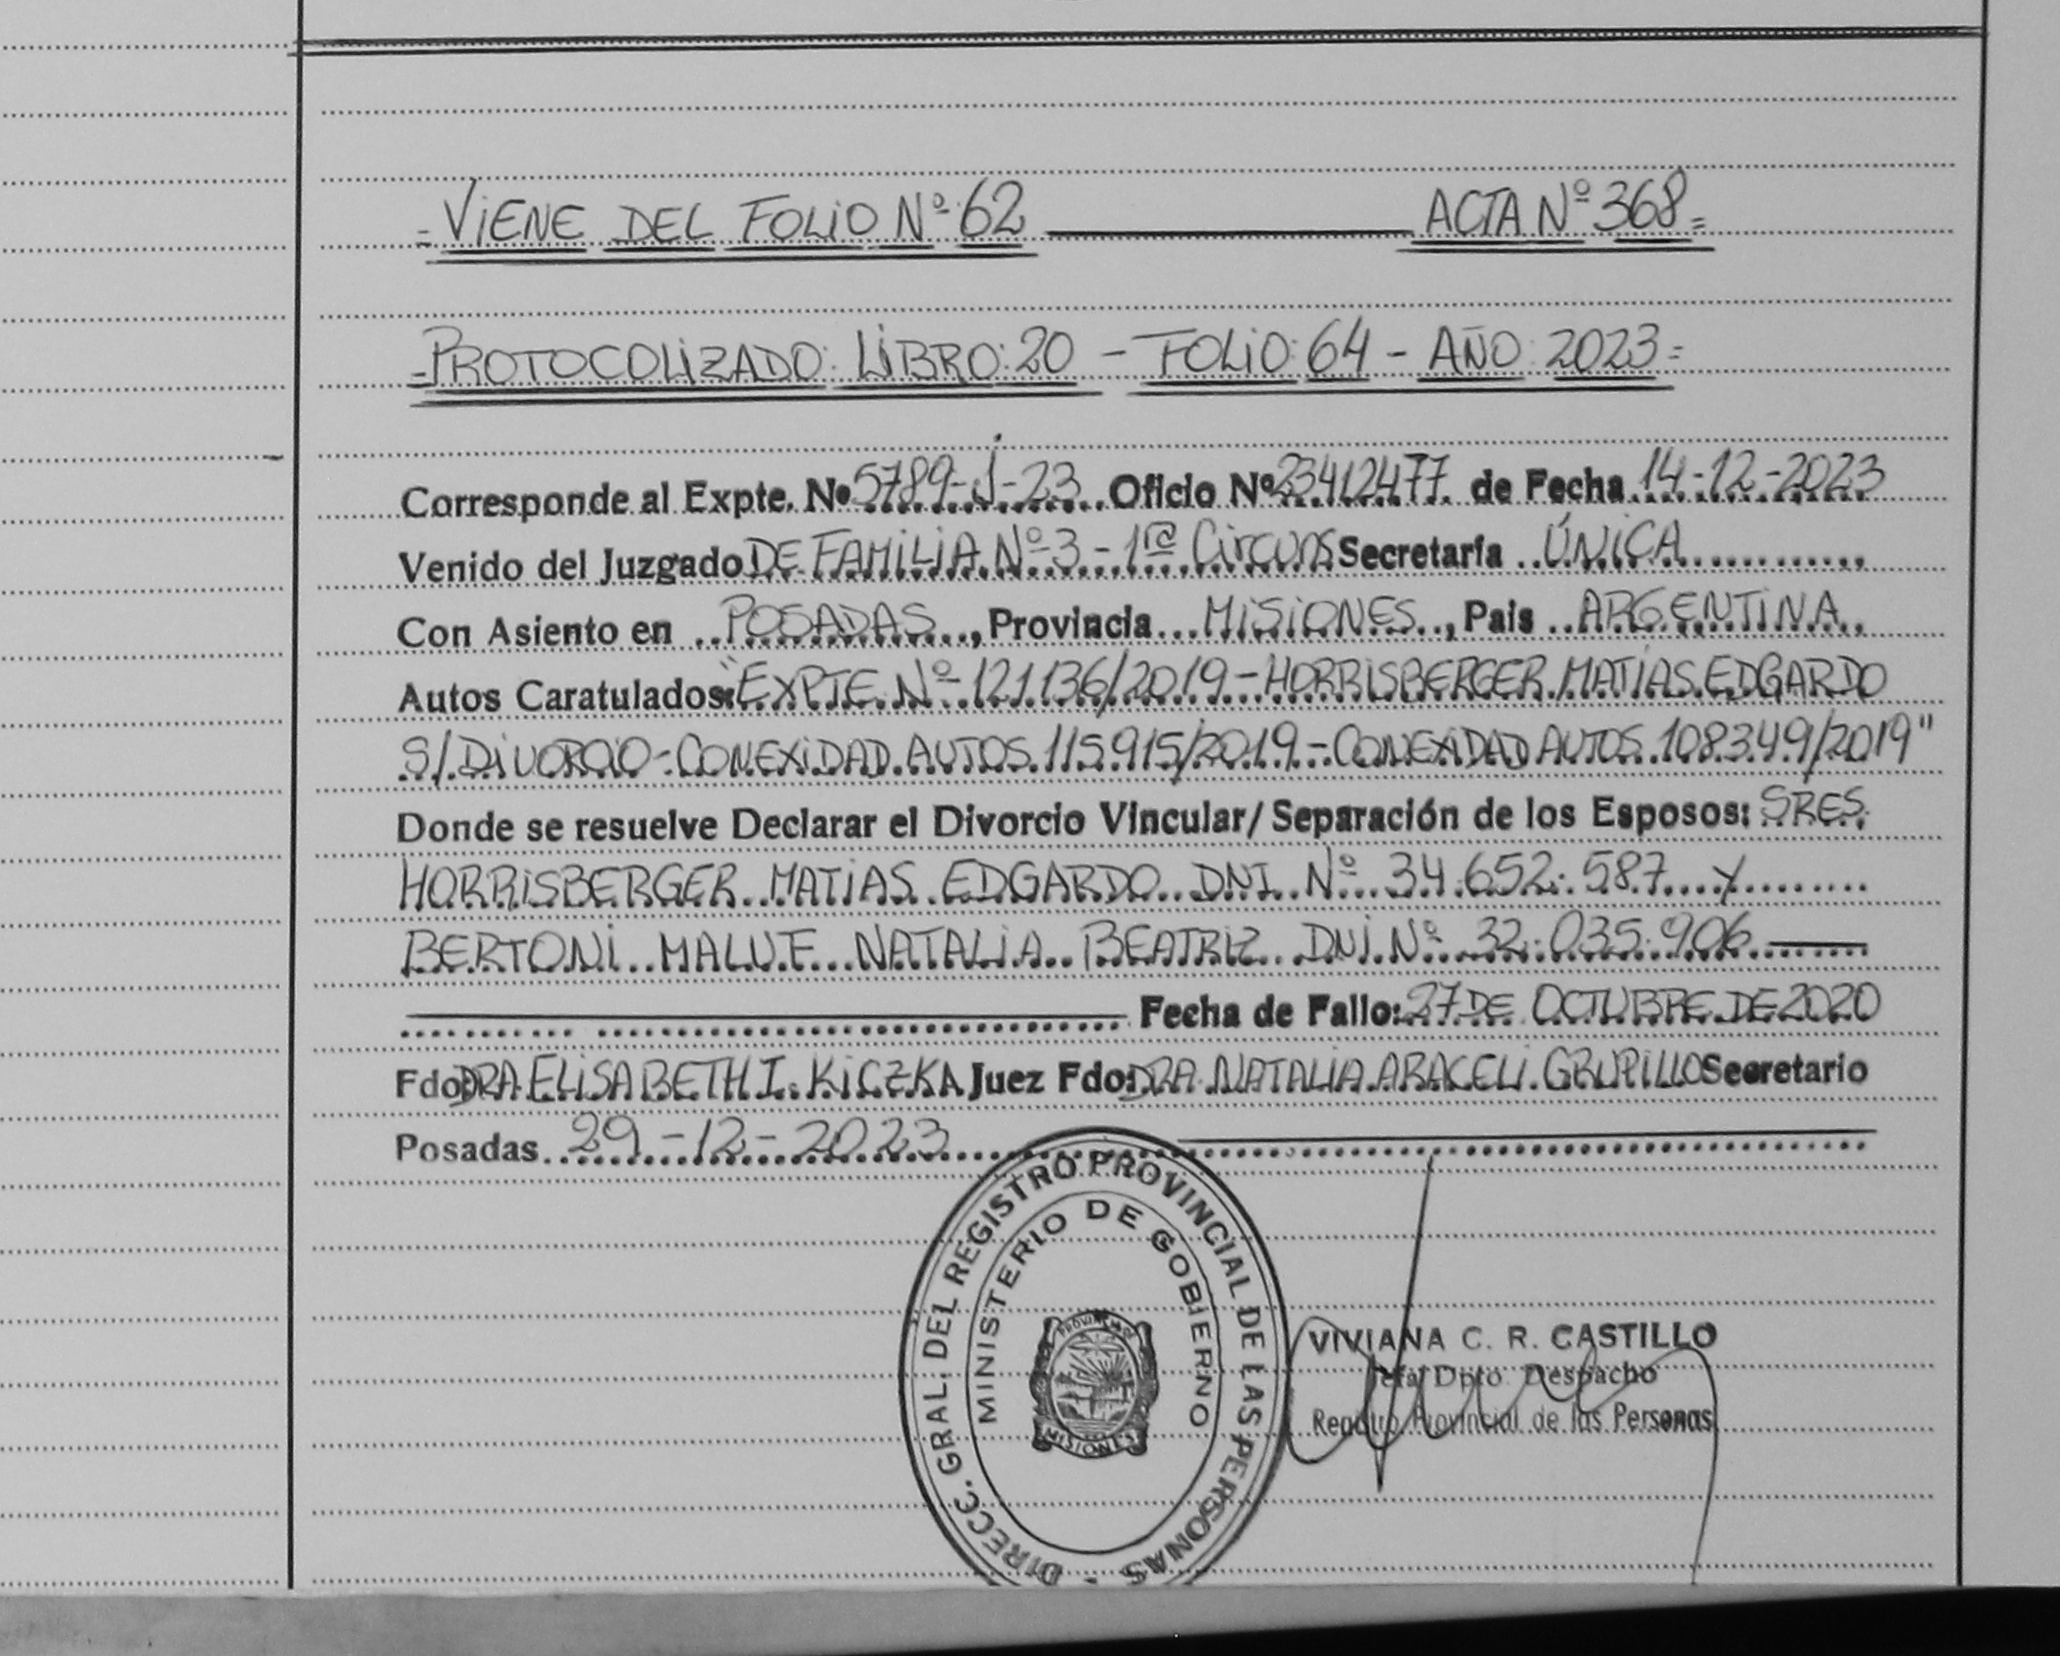 =VIENE DEL FOLIO Nº 62 ACTA Nº 368=
=PROTOCOLIZADO: LIBRO: 20 - FOLIO: 64 - AÑO: 2023=
Corresponde al Expte. Nº 5789-J-23 Oficio Nº 23412477 de Fecha 14-12-2023
Venido del Juzgado DE FAMILIA Nº 3 - 1ra Circuns Secretaría ÚNICA
Con Asiento en POSADAS, Provincia MISIONES, País ARGENTINA,
Autos Caratulados: "EXPTE Nº 121136/2019 - HORRISBERGER MATÍAS EDGARDO
S/ DIVORCIO - CONEXIDAD AUTOS 115915/2019 - CONEXIDAD AUTOS 108349/2019"
Donde se resuelve Declarar el Divorcio Vincular/Separación de los Esposos: SRES.
HORRISBERGER MATÍAS EDGARDO DNI Nº 34.652.587 y
BERTONI MALUF NATALIA BEATRIZ DNI Nº 32.035.906
Fecha de Fallo: 27 DE OCTUBRE DE 2020
Fdo: DRA ELISABETH I. KICZKA Juez Fdo: DRA NATALIA ARACELI GRUPILLO Secretario
Posadas 29-12-2023
DIRECC. GRAL. DEL REGISTRO PROVINCIAL DE LAS PERSONAS -
MINISTERIO DE GOBIERNO
PROVINCIA DE
MISIONES
VIVIANA C. R. CASTILLO
Jefa Dpto. Despacho
Registro Provincial de las Personas